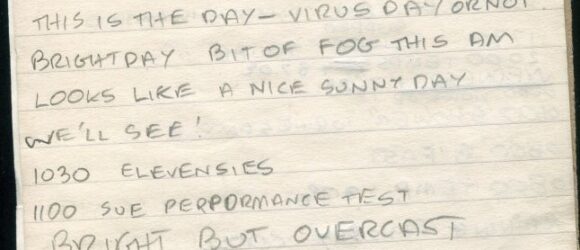 THIS IS THE DAY - VIRUS DAY OR NOT
BRIGHT DAY BIT OF FOG THIS AM
LOOKS LIKE A NICE SUNNY DAY
WE'LL SEE!
1030 ELEVENSIES
1100 SUE PERPORMANCE TEST
BRIGHT BUT OVERCAST